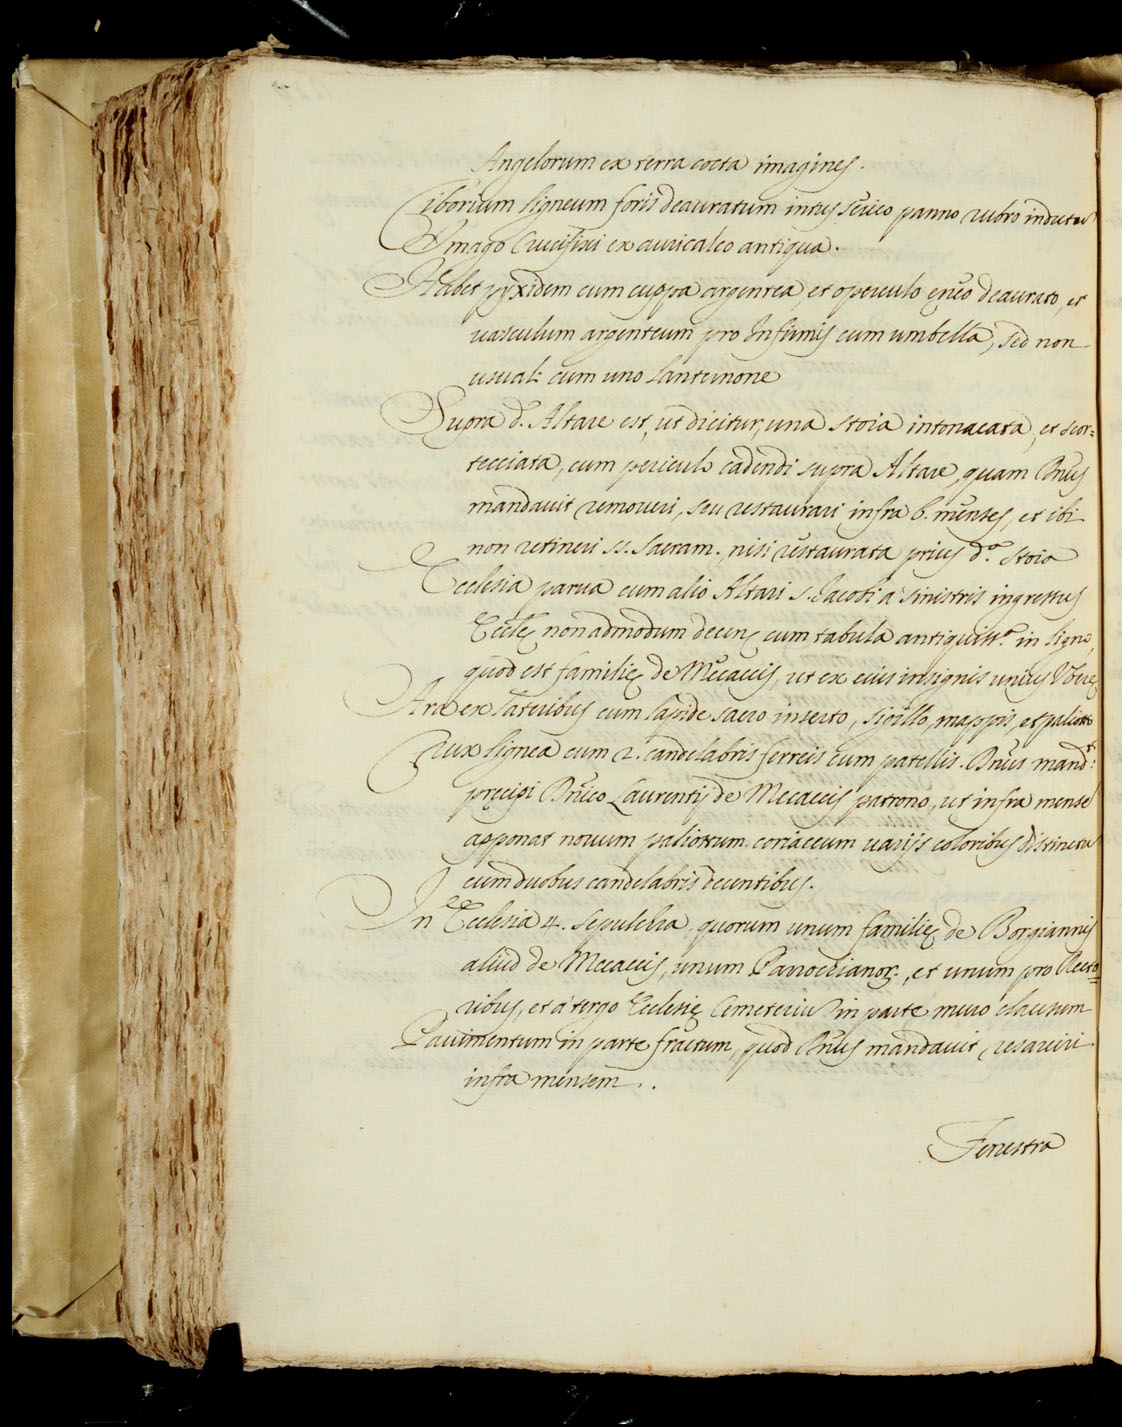 Angelorum ex terra cocta imagines.
Ciborium ligneum foris deauratum intus serico panno rubro indutu
Imago Crucifixi ex auricalco antiqua.
Habet pyxidem cum cuppa argentea, et operculo ęneo deaurato, et
vasculum argenteum pro Infirmis cum umbella, sed non
usual: cum uno lanternone
Supra d. Altare est, ut dicitur, una stoia intonacata, et scor=
tecciata, cum periculo cadendi supra Altare, quam Rmus
mandavit removeri, seu restaurari infra 6. menses, et ibi
non retineri ss. Sacram., nisi restaurata prius d.ª stoia
Ecclesia parva cum alio Altari s. Jacobi à sinistris ingressus
Eccleę non admodum decens cum tabula antiquiss.ª in ligno,
quod est familię de Mecaccis, ut ex eius insignis unius
Ara ex lateribus cum lapide sacro inserto, sigillo, mappis, et paliotto
Crux lignea cum 2. candelabris ferreis cum patellis. Rmus mand.t:
pręcipi Laurentij de Mecaccis patrono, ut infra mense
apponat novum paliottum coriaceum varijs coloribus distinctu
cum duobus candelabris decentibus.
In Ecclesia 4. sepulchra, quorum unum familię de Borgiannis
aliud de Mecaccis, unum Parrochianor., et unum pro Recto=
ribus, et à tergo Ecclesię Cemeteriu in parte muro clausum
Pavimentum in parte fractum, quod Rmus mandavit resarciri
infra mensem..
Fenestra